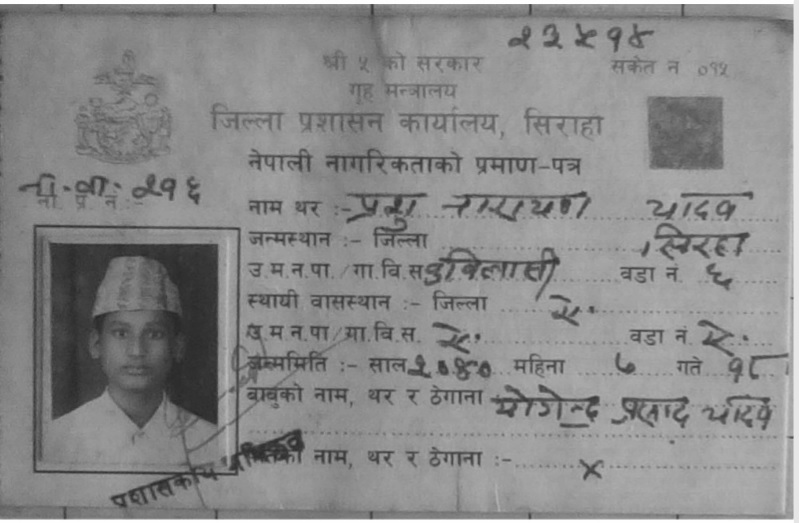 २३५१४
श्री ५ को सरकार
संकेत नं ०१५
गृह मन्त्रालय
जिल्ला प्रशासन कार्यालय, सिराहा
नेपाली नागरिकताको प्रमाण-पत्र
ना. प्र. नं. :-
२१६
नाम थर :- प्रभु नारायण यादव
जन्मस्थान :- जिल्ला सिरहा
उ.म.न.पा./गा.वि.स. वडा नं. ६
स्थायी वासस्थान :- जिल्ला ऐ.
उ.म.न.पा/गा.वि.स. ऐ. वडा नं. ऐ.
जन्ममिति :- साल २०४० महिना ७ गते १८
बाबुको नाम, थर र ठेगाना योगेन्द्र प्रसाद यादव
नाम, थर र ठेगाना :- x
प्रशासकीय